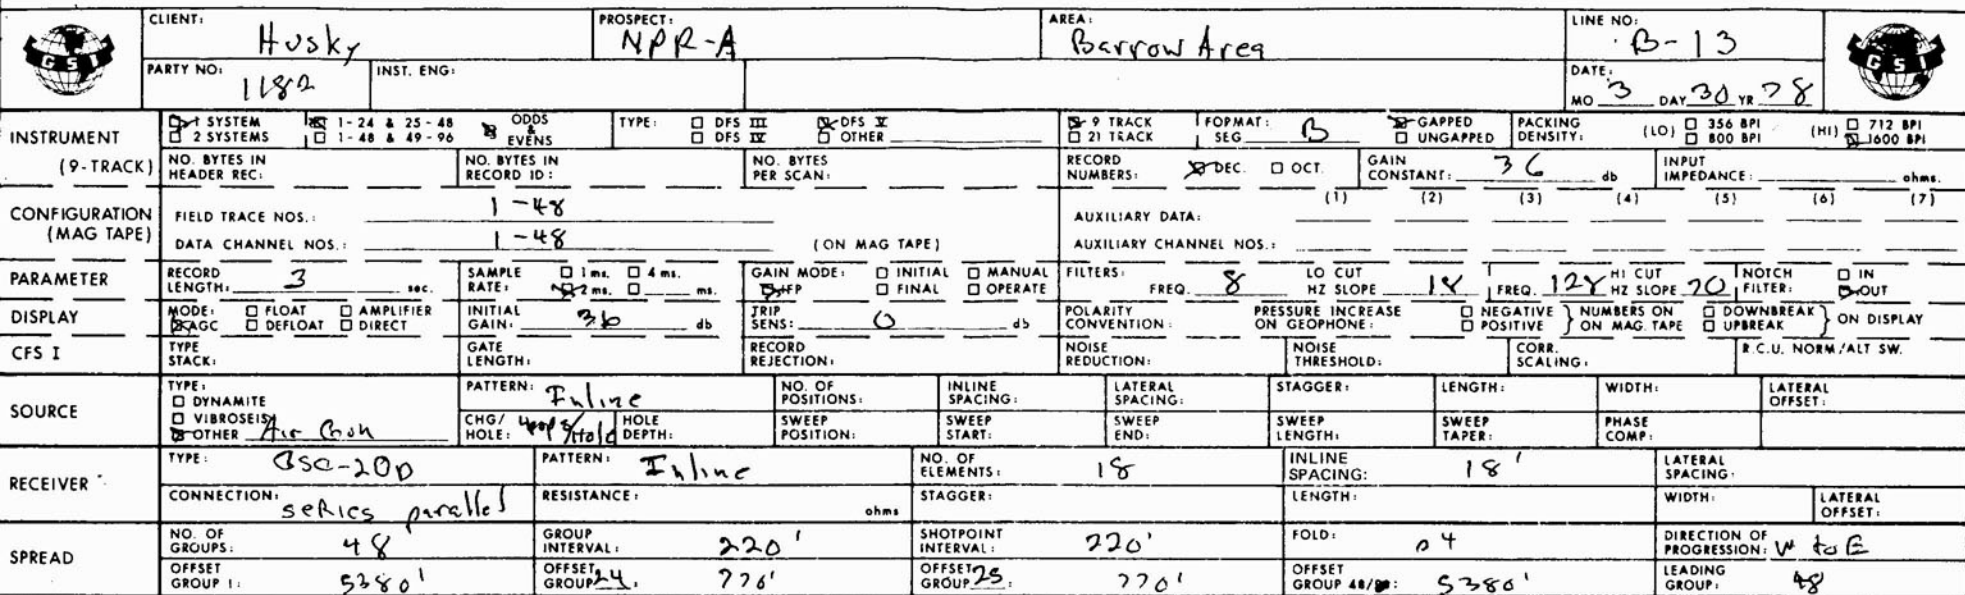 CLIENT: Husky PROSPECT: NPR-A AREA: Barrow Area LINE NO: B-13
GSI GSI
PARTY NO: 1182 INST. ENG: DATE: MO 3 DAY 30 YR 78
INSTRUMENT (9-TRACK)
1 SYSTEM 1-24 & 25-48 ODDS & EVENS TYPE: DFS III DFS V 9 TRACK FORMAT: SEG B GAPPED PACKING DENSITY: (LO) 356 BPI (HI) 712 BPI
2 SYSTEMS 1-48 & 49-96 DFS IV OTHER 21 TRACK UNGAPPED 800 BPI 1600 BPI
NO. BYTES IN HEADER REC: NO. BYTES IN RECORD ID: NO. BYTES PER SCAN: RECORD NUMBERS: DEC. OCT. GAIN CONSTANT: 36 db INPUT IMPEDANCE: ohms.
CONFIGURATION (MAG TAPE)
FIELD TRACE NOS.: 1-48 AUXILIARY DATA: (1) (2) (3) (4) (5) (6) (7)
DATA CHANNEL NOS.: 1-48 (ON MAG TAPE) AUXILIARY CHANNEL NOS.:
PARAMETER
RECORD LENGTH: 3 sec. SAMPLE RATE: 1 ms. 4 ms. 2 ms. ms. GAIN MODE: INITIAL MANUAL IFP FINAL OPERATE FILTERS: FREQ. 8 LO CUT HZ SLOPE 18 FREQ. 128 HI CUT HZ SLOPE 70 NOTCH FILTER: IN OUT
DISPLAY
MODE: FLOAT AMPLIFIER AGC DEFLOAT DIRECT INITIAL GAIN: 36 db TRIP SENS: 0 db POLARITY CONVENTION: PRESSURE INCREASE ON GEOPHONE: NEGATIVE POSITIVE } NUMBERS ON MAG. TAPE DOWNBREAK UPBREAK } ON DISPLAY
CFS I
TYPE STACK: GATE LENGTH: RECORD REJECTION: NOISE REDUCTION: NOISE THRESHOLD: CORR. SCALING: R.C.U. NORM/ALT SW.
SOURCE
TYPE: DYNAMITE VIBROSEIS OTHER Air Gun
PATTERN: Inline NO. OF POSITIONS: INLINE SPACING: LATERAL SPACING: STAGGER: LENGTH: WIDTH: LATERAL OFFSET:
CHG/HOLE: 4pops/Hold HOLE DEPTH: SWEEP POSITION: SWEEP START: SWEEP END: SWEEP LENGTH: SWEEP TAPER: PHASE COMP:
RECEIVER
TYPE: GSC-20D PATTERN: Inline NO. OF ELEMENTS: 18 INLINE SPACING: 18' LATERAL SPACING:
CONNECTION: series parallel RESISTANCE: ohms STAGGER: LENGTH: WIDTH: LATERAL OFFSET:
SPREAD
NO. OF GROUPS: 48 GROUP INTERVAL: 220' SHOTPOINT INTERVAL: 220' FOLD: 24 DIRECTION OF PROGRESSION: W to E
OFFSET GROUP 1: 5380' OFFSET GROUP 24: 770' OFFSET GROUP 25: 770' OFFSET GROUP 48/96: 5380' LEADING GROUP: 48